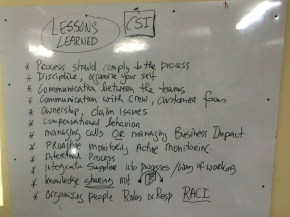 LESSONS LEARNED
CSI
* Process should comply to the process
* Discipline, organize your self
* Communication between the teams
* Communication with Crew, customer focus
* Ownership, claim issues
* Compensational behavior
* managing calls OR managing Business Impact
* Proactive monitoring Active monitoring
* Internal Process
* Integrate Supplier into processes / way of working
* knowledge sharing not
* Organizing people Roles & Resp RACI